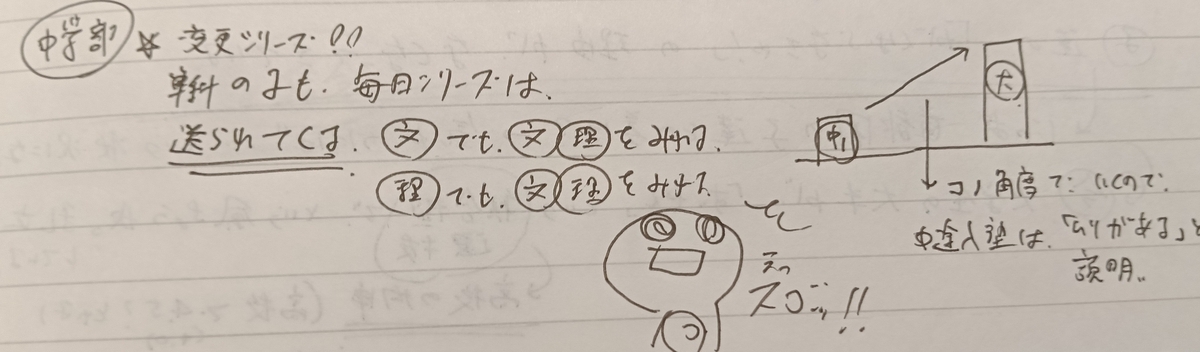 中学部 ☆ 変更シリーズ!!
単科の子も、毎日シリーズは、
送られてくる。 文 でも、文 理 をみれる。
理 でも、文 理 をみれる
中1
大
コノ角度で いくので、
中途入塾は、「ムリがある」と
説明。
えっ
スゴーッ!!